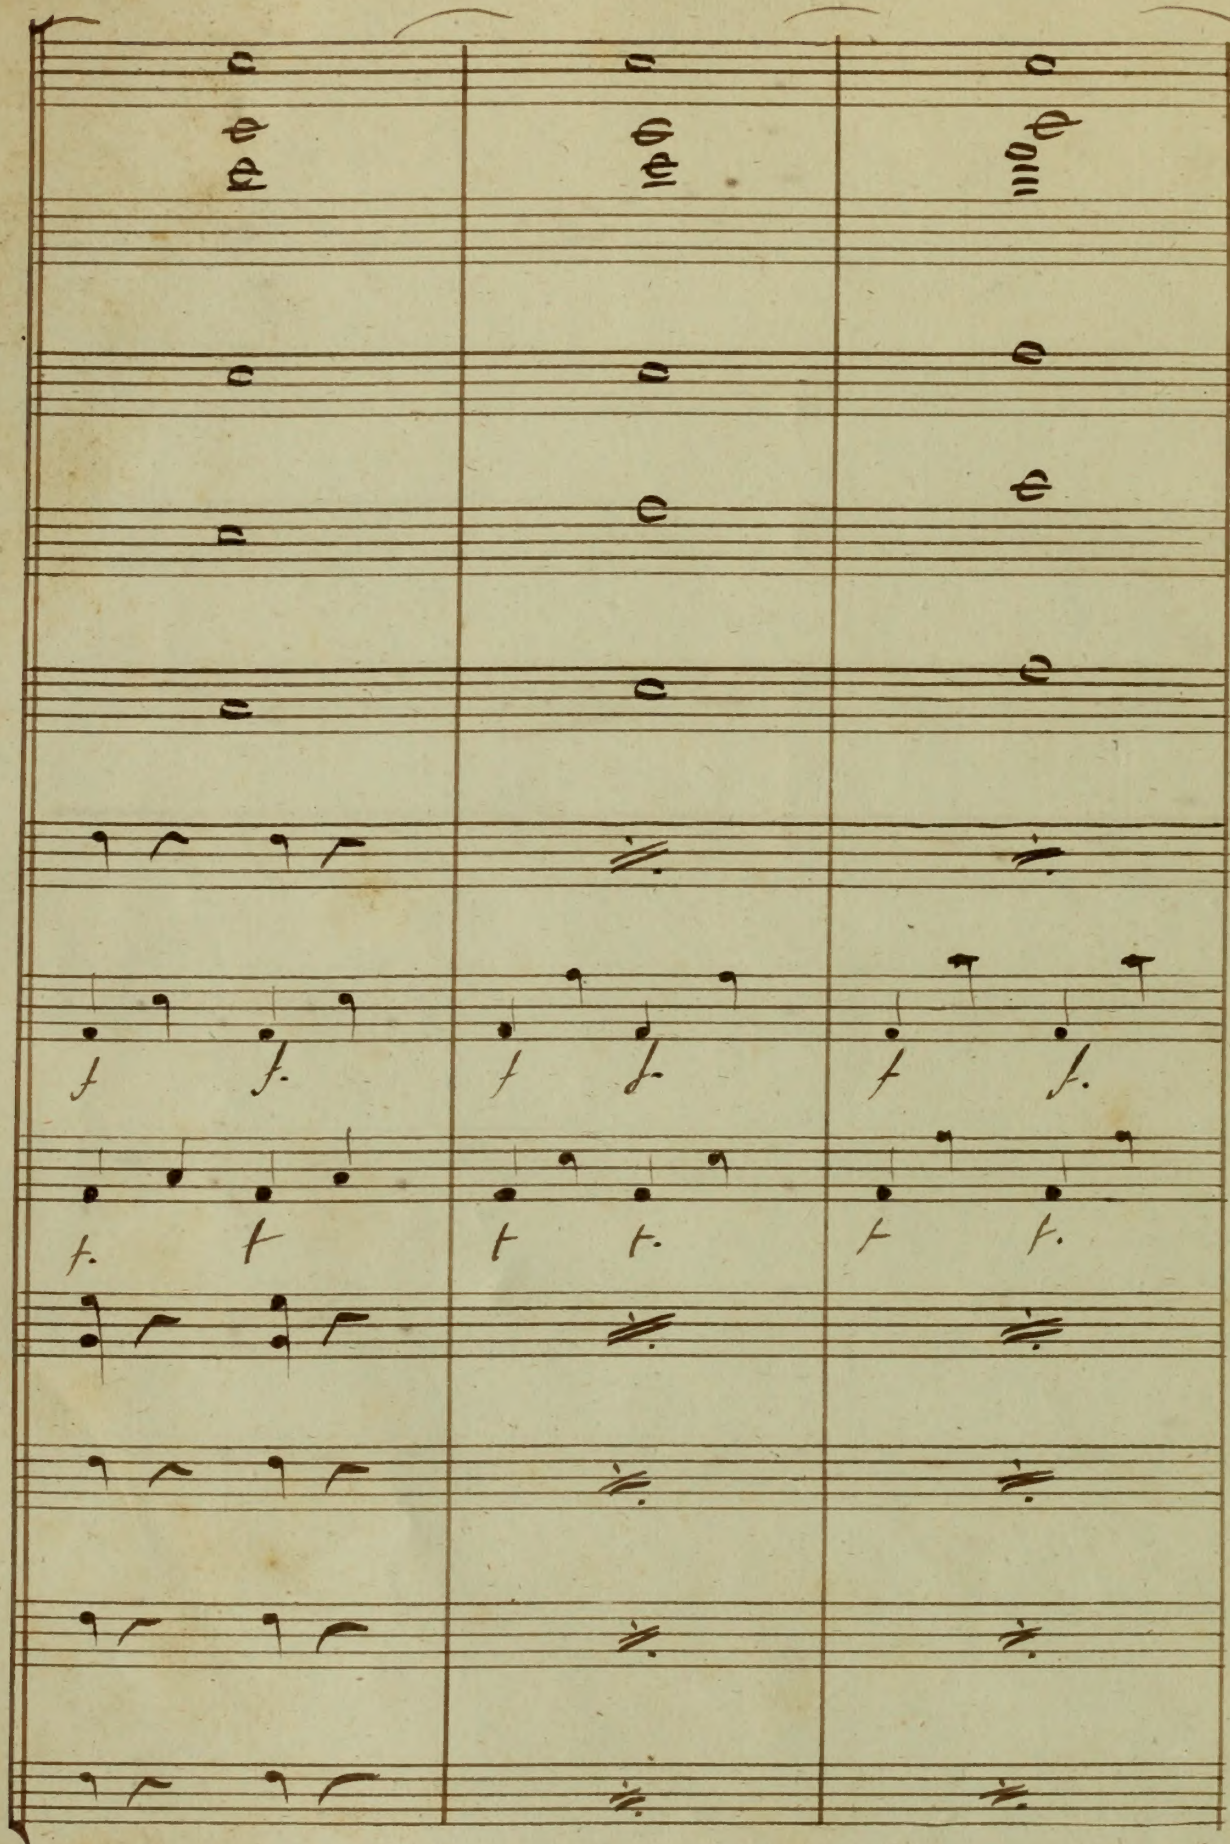 f f. f f. f f.
f. f f f. f f.